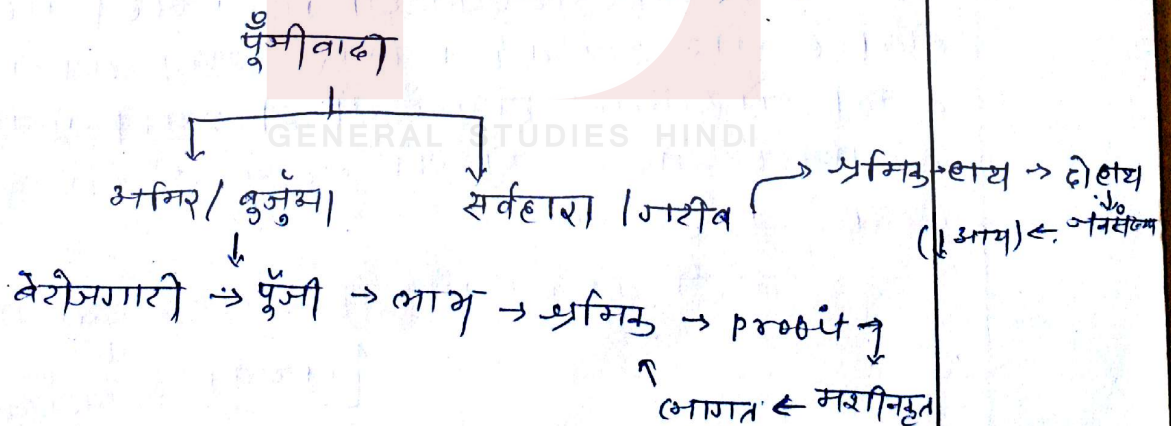 पूँजीवादी
GENERAL STUDIES HINDI
अमिर / बुर्जुआ
सर्वहारा / गरीब → श्रमिक → हाथ → दो हाथ
(↓ आय) ← जनसंख्या
बेरोजगारी → पूँजी → लाभ → श्रमिक → profit
लागत ← मशीनकृत